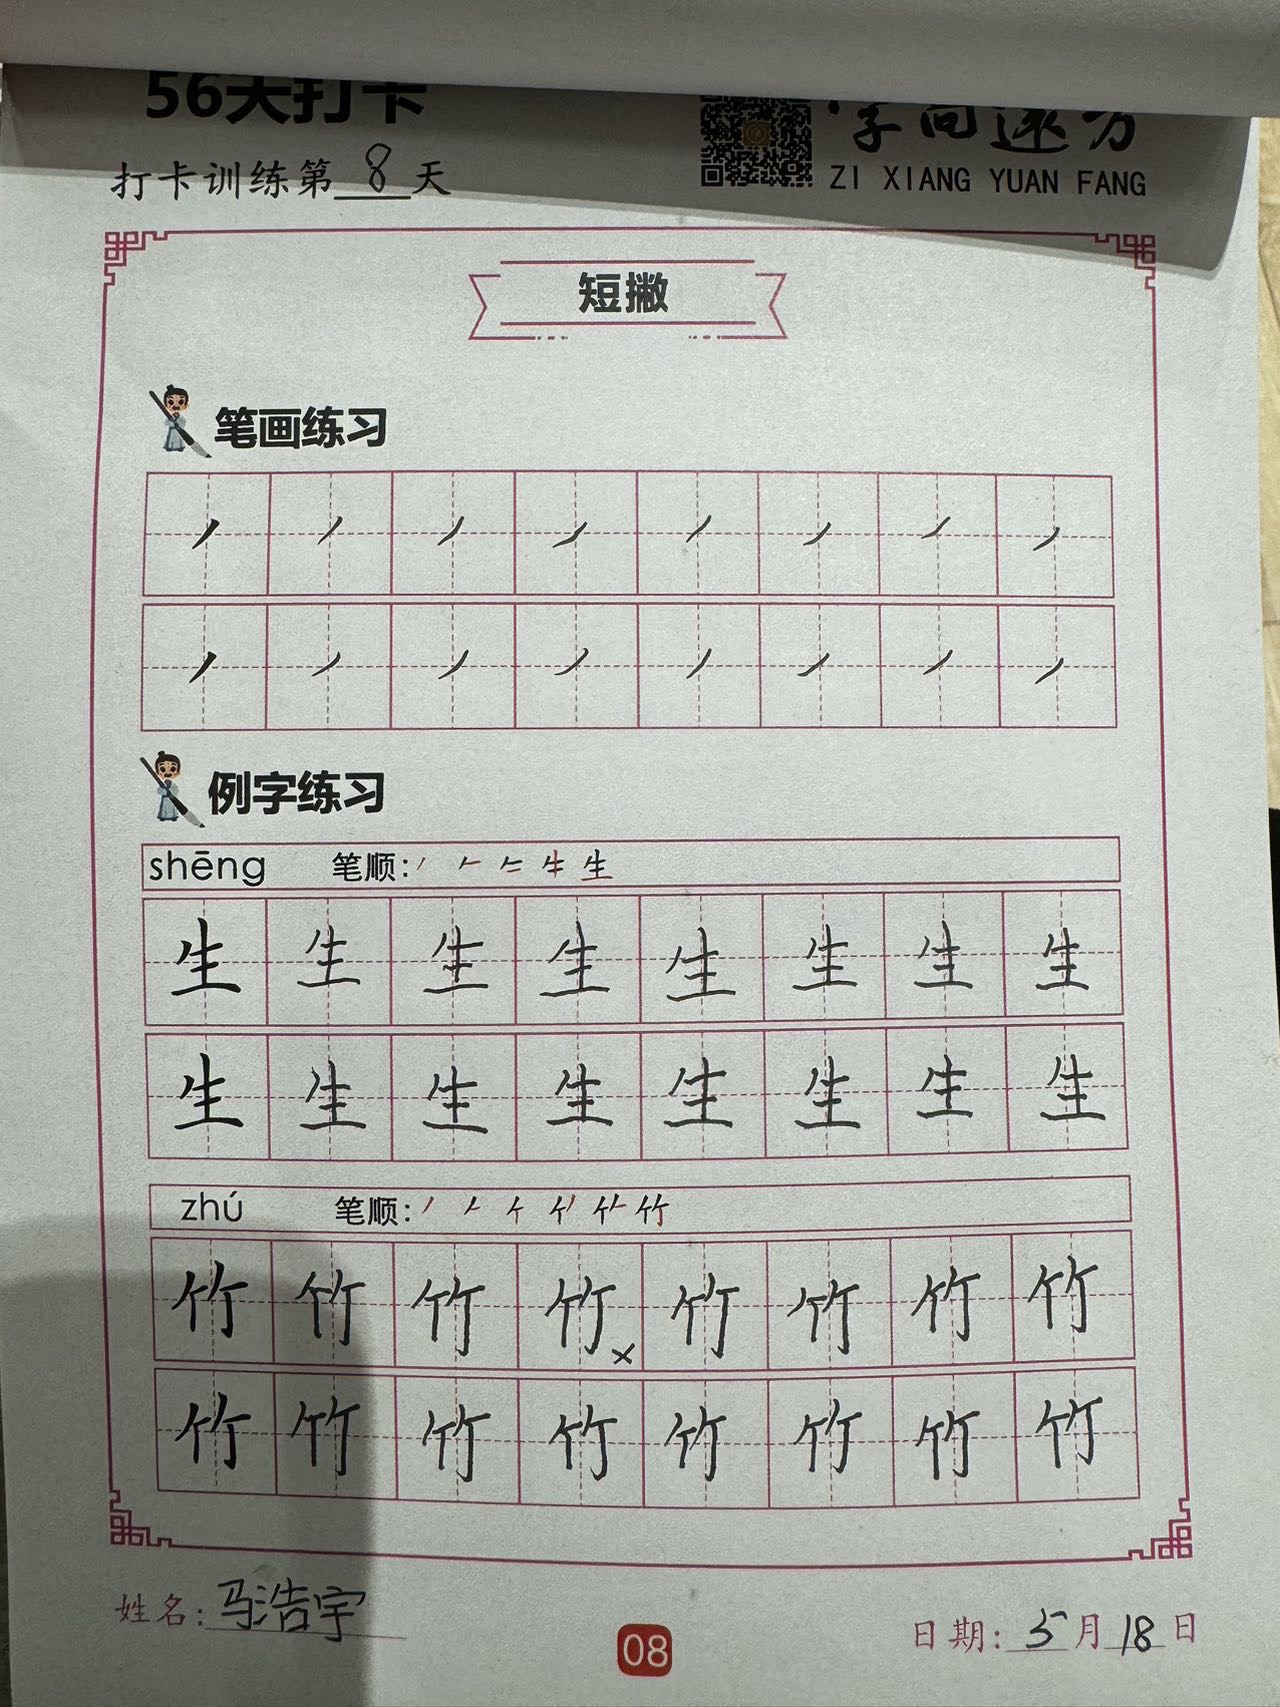 56天打卡
字向远方
打卡训练第 8 天
ZI XIANG YUAN FANG
短撇
笔画练习
例字练习
shēng 笔顺:
生 生 生 生 生 生 生 生
生 生 生 生 生 生 生 生
zhú 笔顺:
竹 竹 竹 竹 × 竹 竹 竹 竹
竹 竹 竹 竹 竹 竹 竹 竹
姓名: 马浩宇
08
日期: 5 月 18 日